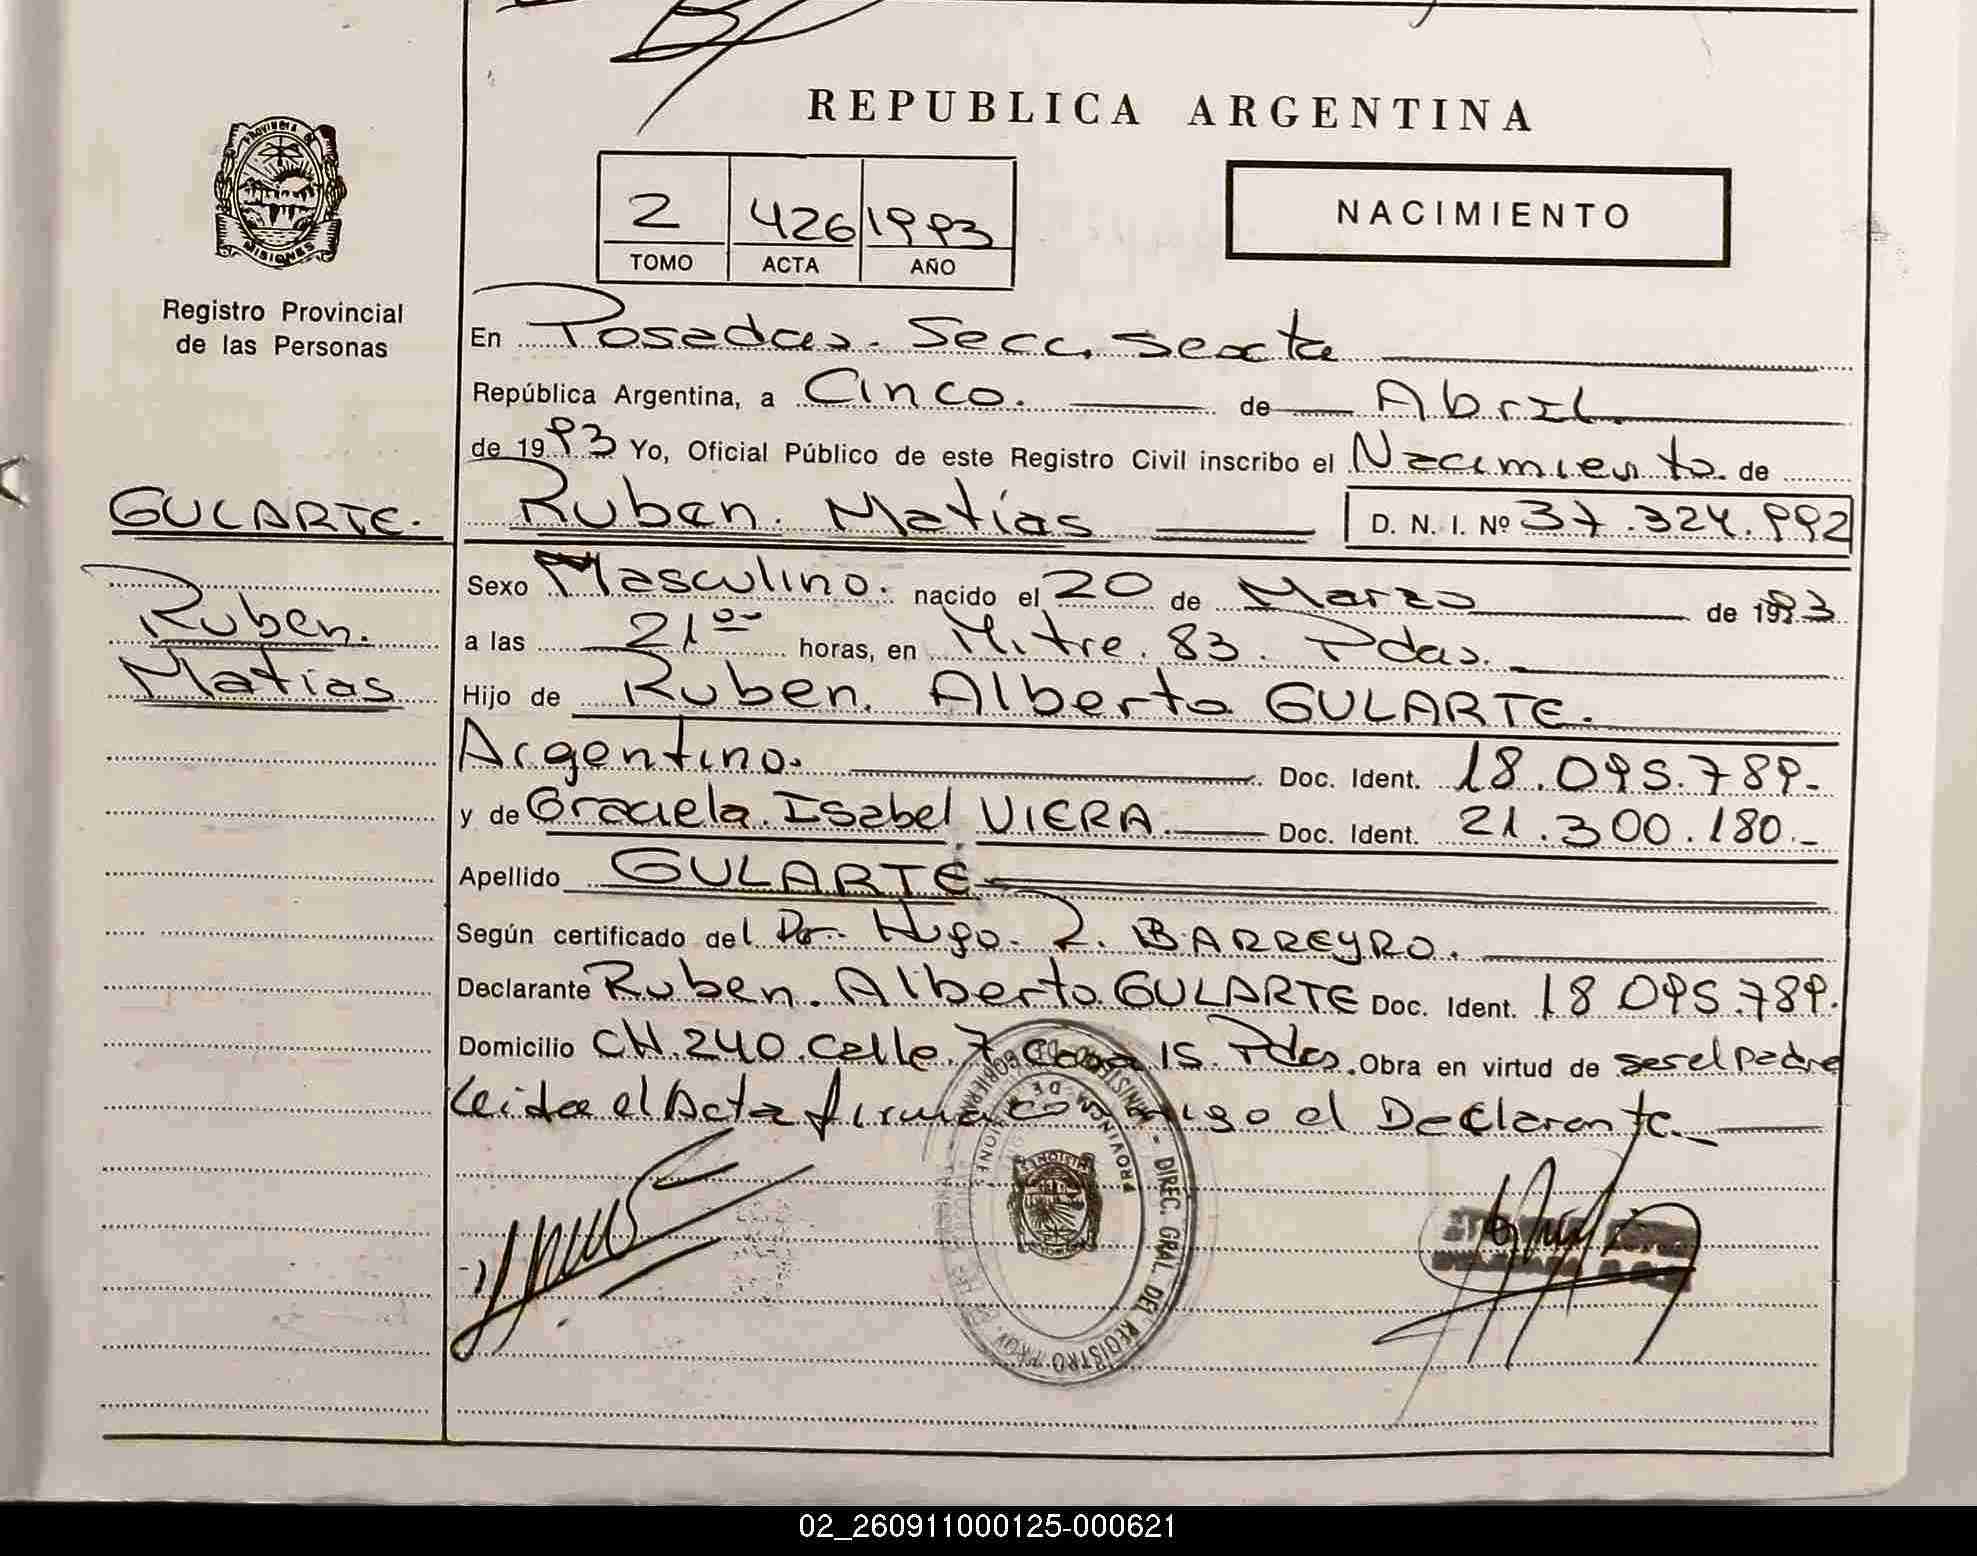 REPUBLICA ARGENTINA
PROVINCIA DE
MISIONES
Registro Provincial
de las Personas
2 426 1993
TOMO ACTA AÑO
NACIMIENTO
En Posadas. Secc. Sexta
República Argentina, a Cinco. de Abril
de 1993 Yo, Oficial Público de este Registro Civil inscribo el Nacimiento de
GULARTE. Ruben. Matías D. N. I. Nº 37.324.992
Sexo Masculino. nacido el 20 de Marzo de 1993
Ruben. a las 21 00 horas, en Mitre. 83. Pdas.
Matías Hijo de Ruben. Alberto GULARTE.
Argentino. Doc. Ident. 18.095.789.-
y de Graciela. Isabel VIERA Doc. Ident. 21.300.180.-
Apellido GULARTE
Según certificado del Dr. Hugo. R. BARREYRO.
Declarante Ruben. Alberto GULARTE Doc. Ident. 18 095.789.
Domicilio CH.240.Calle.7 Casa 15. Pdas. Obra en virtud de ser el padre
Leida el Acta firma conmigo el Declarante.-
PROVINCIA DE MISIONES
DIREC. GRAL. DEL REGISTRO PROV.
02_260911000125-000621